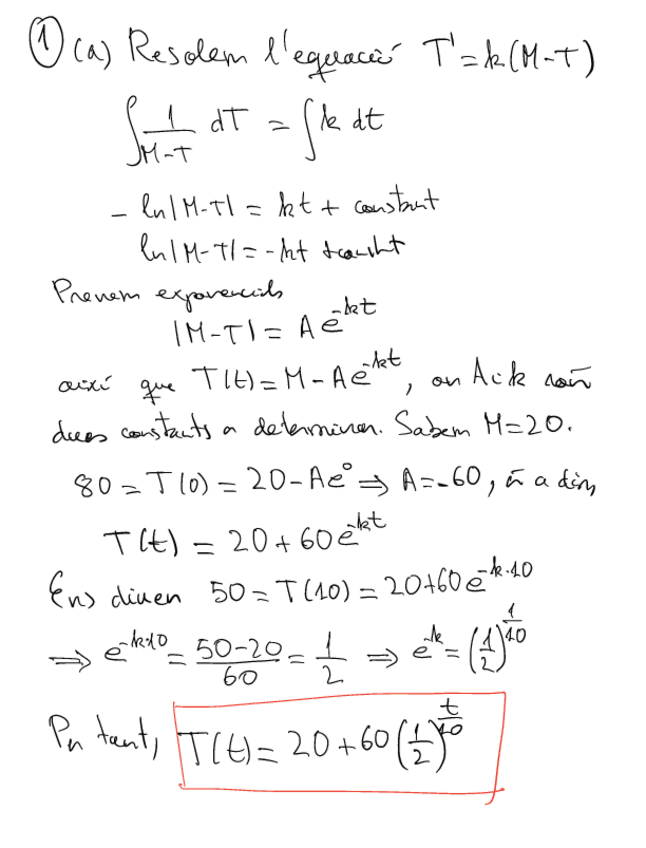 ① (a) Resolem l'equació T' = k(M-T)
∫ 1/(M-T) dT = ∫ k dt
- ln|M-T| = kt + constant
ln|M-T| = -kt + const
Prenem exponencials
|M-T| = A e^{-kt}
així que T(t) = M - A e^{-kt}, on A i k són
dues constants a determinar. Sabem M=20.
80 = T(0) = 20 - A e^0 ⇒ A = -60, és a dir,
T(t) = 20 + 60 e^{-kt}
Ens diuen 50 = T(10) = 20 + 60 e^{-k·10}
⇒ e^{-k·10} = (50-20)/60 = 1/2 ⇒ e^{-k} = (1/2)^{1/10}
Per tant, T(t) = 20 + 60 (1/2)^{t/10}